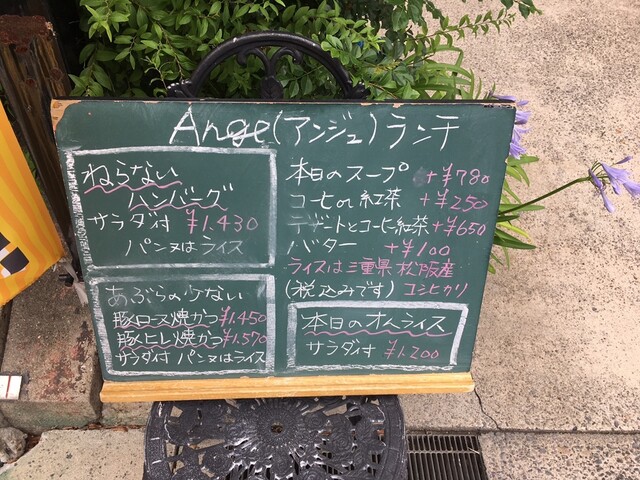 Ange(アンジュ)ランチ
ねらない
ハンバーグ
サラダ付 ¥1.430
パン又はライス
あぶらの少ない
豚ロース焼かつ¥1.450
豚ヒレ焼かつ¥1.570
サラダ付 パン又はライス
本日のスープ +¥780
コーヒor紅茶 +¥250
デザートとコーヒ紅茶+¥650
バター +¥100
ライスは三重県松阪産
(税込みです) コシヒカリ
本日のオムライス
サラダ付 ¥1.200